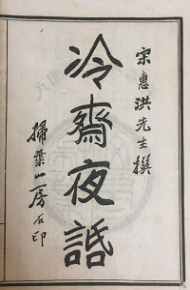 宋惠洪先生撰
冷齋夜話
掃葉山房石印